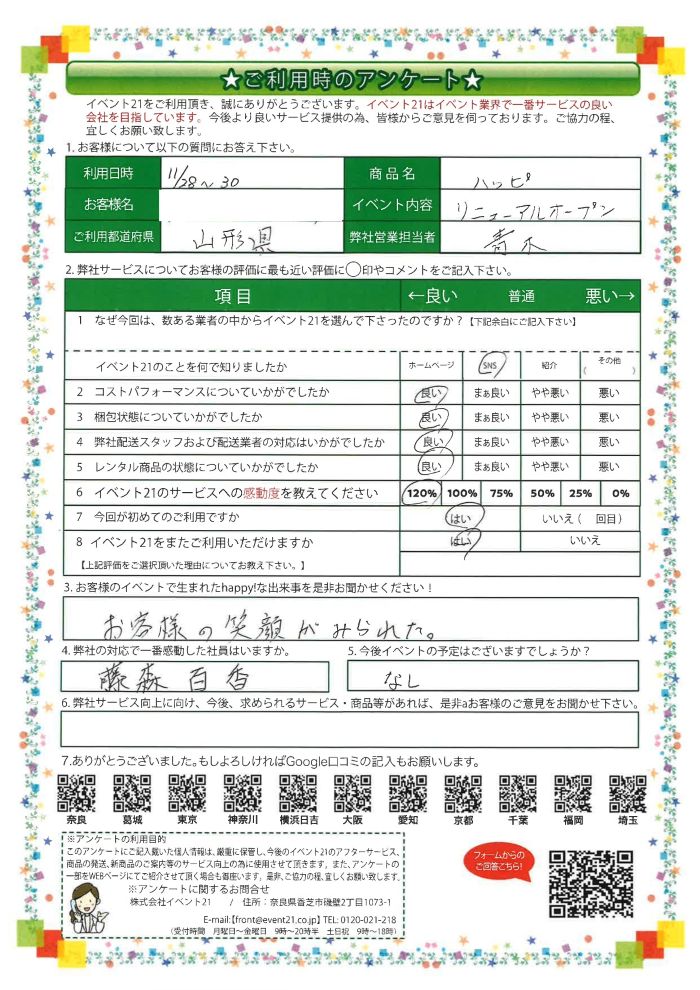 ★ご利用時のアンケート★
イベント21をご利用頂き、誠にありがとうございます。イベント21はイベント業界で一番サービスの良い
会社を目指しています。今後より良いサービス提供の為、皆様からご意見を伺っております。ご協力の程、
宜しくお願い致します。
1. お客様について以下の質問にお答え下さい。
利用日時 11/28～30 商品名 ハッピ
お客様名 イベント内容 リニューアルオープン
ご利用都道府県 山形県 弊社営業担当者 青木
2. 弊社サービスについてお客様の評価に最も近い評価に◯印やコメントをご記入下さい。
項目 ←良い 普通 悪い→
1 なぜ今回は、数ある業者の中からイベント21を選んで下さったのですか？【下記余白にご記入下さい】
イベント21のことを何で知りましたか ホームページ SNS 紹介 その他( )
2 コストパフォーマンスについていかがでしたか 良い まぁ良い やや悪い 悪い
3 梱包状態についていかがでしたか 良い まぁ良い やや悪い 悪い
4 弊社配送スタッフおよび配送業者の対応はいかがでしたか 良い まぁ良い やや悪い 悪い
5 レンタル商品の状態についていかがでしたか 良い まぁ良い やや悪い 悪い
6 イベント21のサービスへの感動度を教えてください 120% 100% 75% 50% 25% 0%
7 今回が初めてのご利用ですか はい いいえ( 回目)
8 イベント21をまたご利用いただけますか はい いいえ
【上記評価をご選択頂いた理由についてお教え下さい。】
3. お客様のイベントで生まれたhappy!な出来事を是非お聞かせください！
お客様の笑顔がみられた。
4. 弊社の対応で一番感動した社員はいますか。 5. 今後イベントの予定はございますでしょうか？
藤森百香 なし
6. 弊社サービス向上に向け、今後、求められるサービス・商品等があれば、是非aお客様のご意見をお聞かせ下さい。
7.ありがとうございました。もしよろしければGoogle口コミの記入もお願いします。
奈良 葛城 東京 神奈川 横浜日吉 大阪 愛知 京都 千葉 福岡 埼玉
※アンケートの利用目的
このアンケートにご記入戴いた個人情報は、厳重に保管し、今後のイベント21のアフターサービス、
商品の発送、新商品のご案内等のサービス向上の為に使用させて頂きます。また、アンケートの
一部をWEBページにてご紹介させて頂く場合も御座います。是非、ご協力の程、宜しくお願い致します。
※アンケートに関するお問合せ
株式会社イベント21 / 住所：奈良県香芝市磯壁2丁目1073-1
E-mail:【front@event21.co.jp】 TEL: 0120-021-218
(受付時間 月曜日～金曜日 9時～20時半 土日祝 9時～18時)
フォームからの
ご回答こちら！